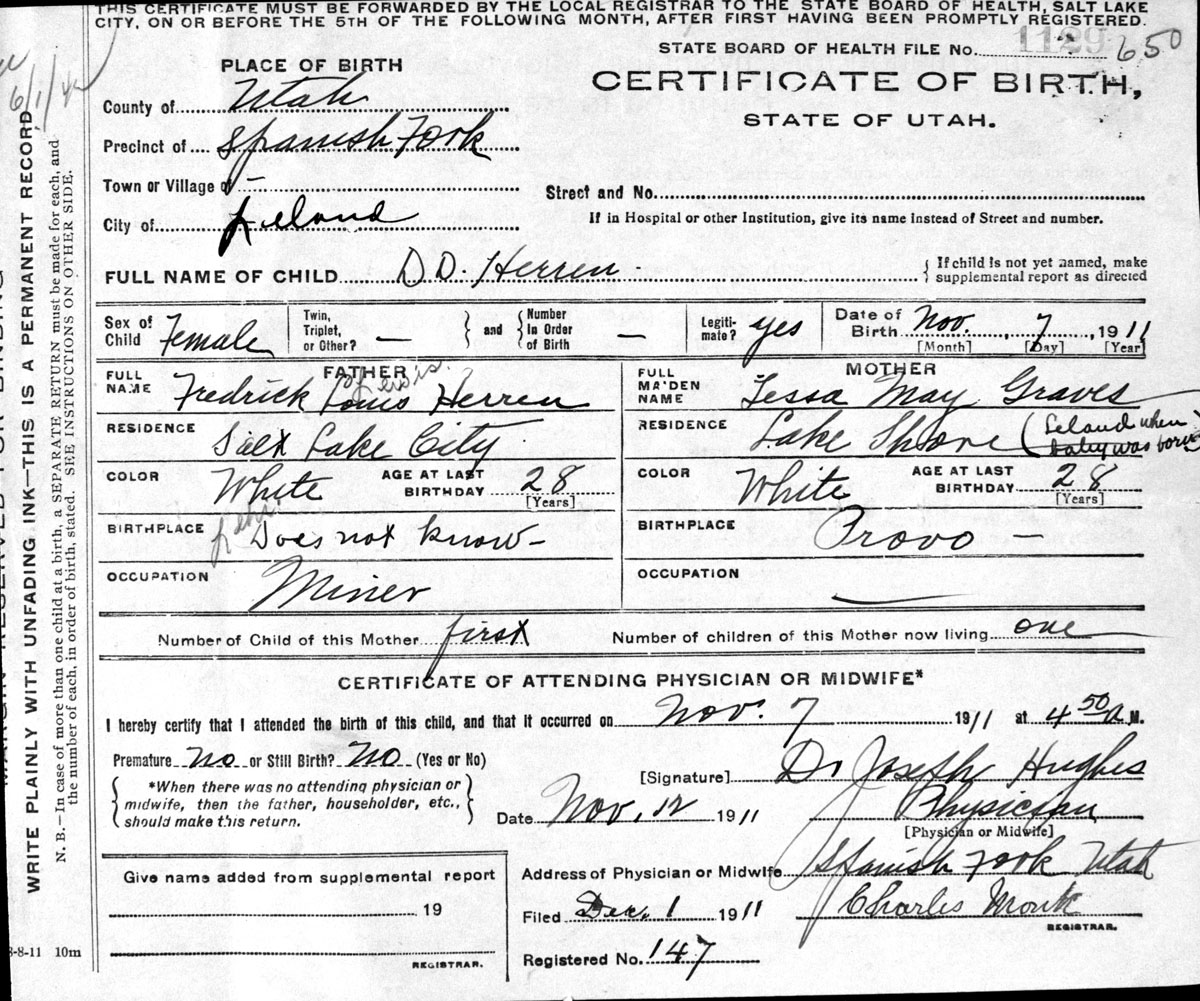 THIS CERTIFICATE MUST BE FORWARDED BY THE LOCAL REGISTRAR TO THE STATE BOARD OF HEALTH, SALT LAKE
CITY, ON OR BEFORE THE 5TH OF THE FOLLOWING MONTH, AFTER FIRST HAVING BEEN PROMPTLY REGISTERED.
STATE BOARD OF HEALTH FILE No. 1129 650
PLACE OF BIRTH
CERTIFICATE OF BIRTH,
STATE OF UTAH.
County of Utah
Precinct of Spanish Fork
Town or Village of —
Street and No.
City of Leland
If in Hospital or other Institution, give its name instead of Street and number.
FULL NAME OF CHILD D D. Herren
{ If child is not yet named, make
supplemental report as directed
Sex of Child Female
Twin, Triplet, or Other? —
and
Number in Order of Birth —
Legitimate? yes
Date of Birth Nov. 7, 1911
[Month] [Day] [Year]
FATHER
FULL NAME Fredrick Louis Herren
Lewis.
RESIDENCE Salt Lake City
COLOR White
AGE AT LAST BIRTHDAY 28
[Years]
BIRTHPLACE Does not know —
OCCUPATION Miner
MOTHER
FULL MAIDEN NAME Tessa May Graves
RESIDENCE Lake Shore (Leland when
baby was born)
COLOR White
AGE AT LAST BIRTHDAY 28
[Years]
BIRTHPLACE Provo —
OCCUPATION —
Number of Child of this Mother first
Number of children of this Mother now living one
CERTIFICATE OF ATTENDING PHYSICIAN OR MIDWIFE*
I hereby certify that I attended the birth of this child, and that it occurred on Nov. 7 1911 at 4 50 a M.
Premature No or Still Birth? No (Yes or No)
[Signature] Dr Joseph Hughes
*When there was no attending physician or
midwife, then the father, householder, etc.,
should make this return.
Date Nov. 12 1911
Physician
[Physician or Midwife]
Address of Physician or Midwife Spanish Fork Utah
Give name added from supplemental report
19
REGISTRAR.
Filed Dec. 1 1911
Charles Monk
REGISTRAR.
Registered No. 147
8-8-11 10m
6/1/4
WRITE PLAINLY WITH UNFADING INK—THIS IS A PERMANENT RECORD
N. B.—In case of more than one child at a birth, a SEPARATE RETURN must be made for each, and
the number of each, in order of birth, stated. SEE INSTRUCTIONS ON OTHER SIDE.